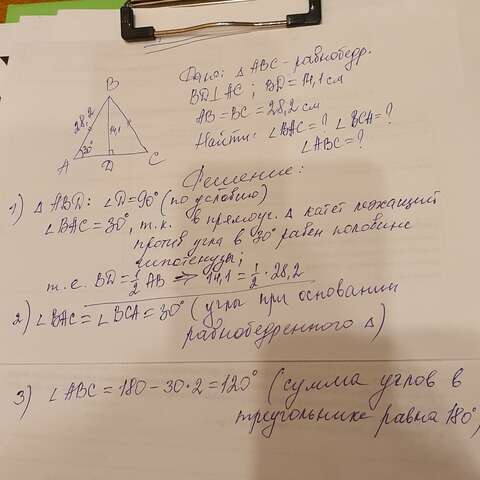 B
28,2
14,1
30°
A
D
C
Дано: △ ABC - равнобедр.
BD⊥AC ; BD = 14,1 см
AB = BC = 28,2 см
Найти: ∠BAC = ? ∠BCA = ?
∠ABC = ?
Решение:
1) △ ABD: ∠D = 90° (по условию)
∠BAC = 30°, т.к. в прямоуг. △ катет лежащий
против угла в 30° равен половине
гипотенузы;
т.е. BD = 1/2 AB ⇒ 14,1 = 1/2 · 28,2
2) ∠BAC = ∠BCA = 30° (углы при основании
равнобедренного △)
3) ∠ABC = 180 - 30·2 = 120° (сумма углов в
треугольнике равна 180°)